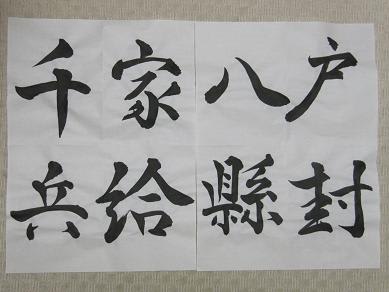 户封
八縣
家給
千兵